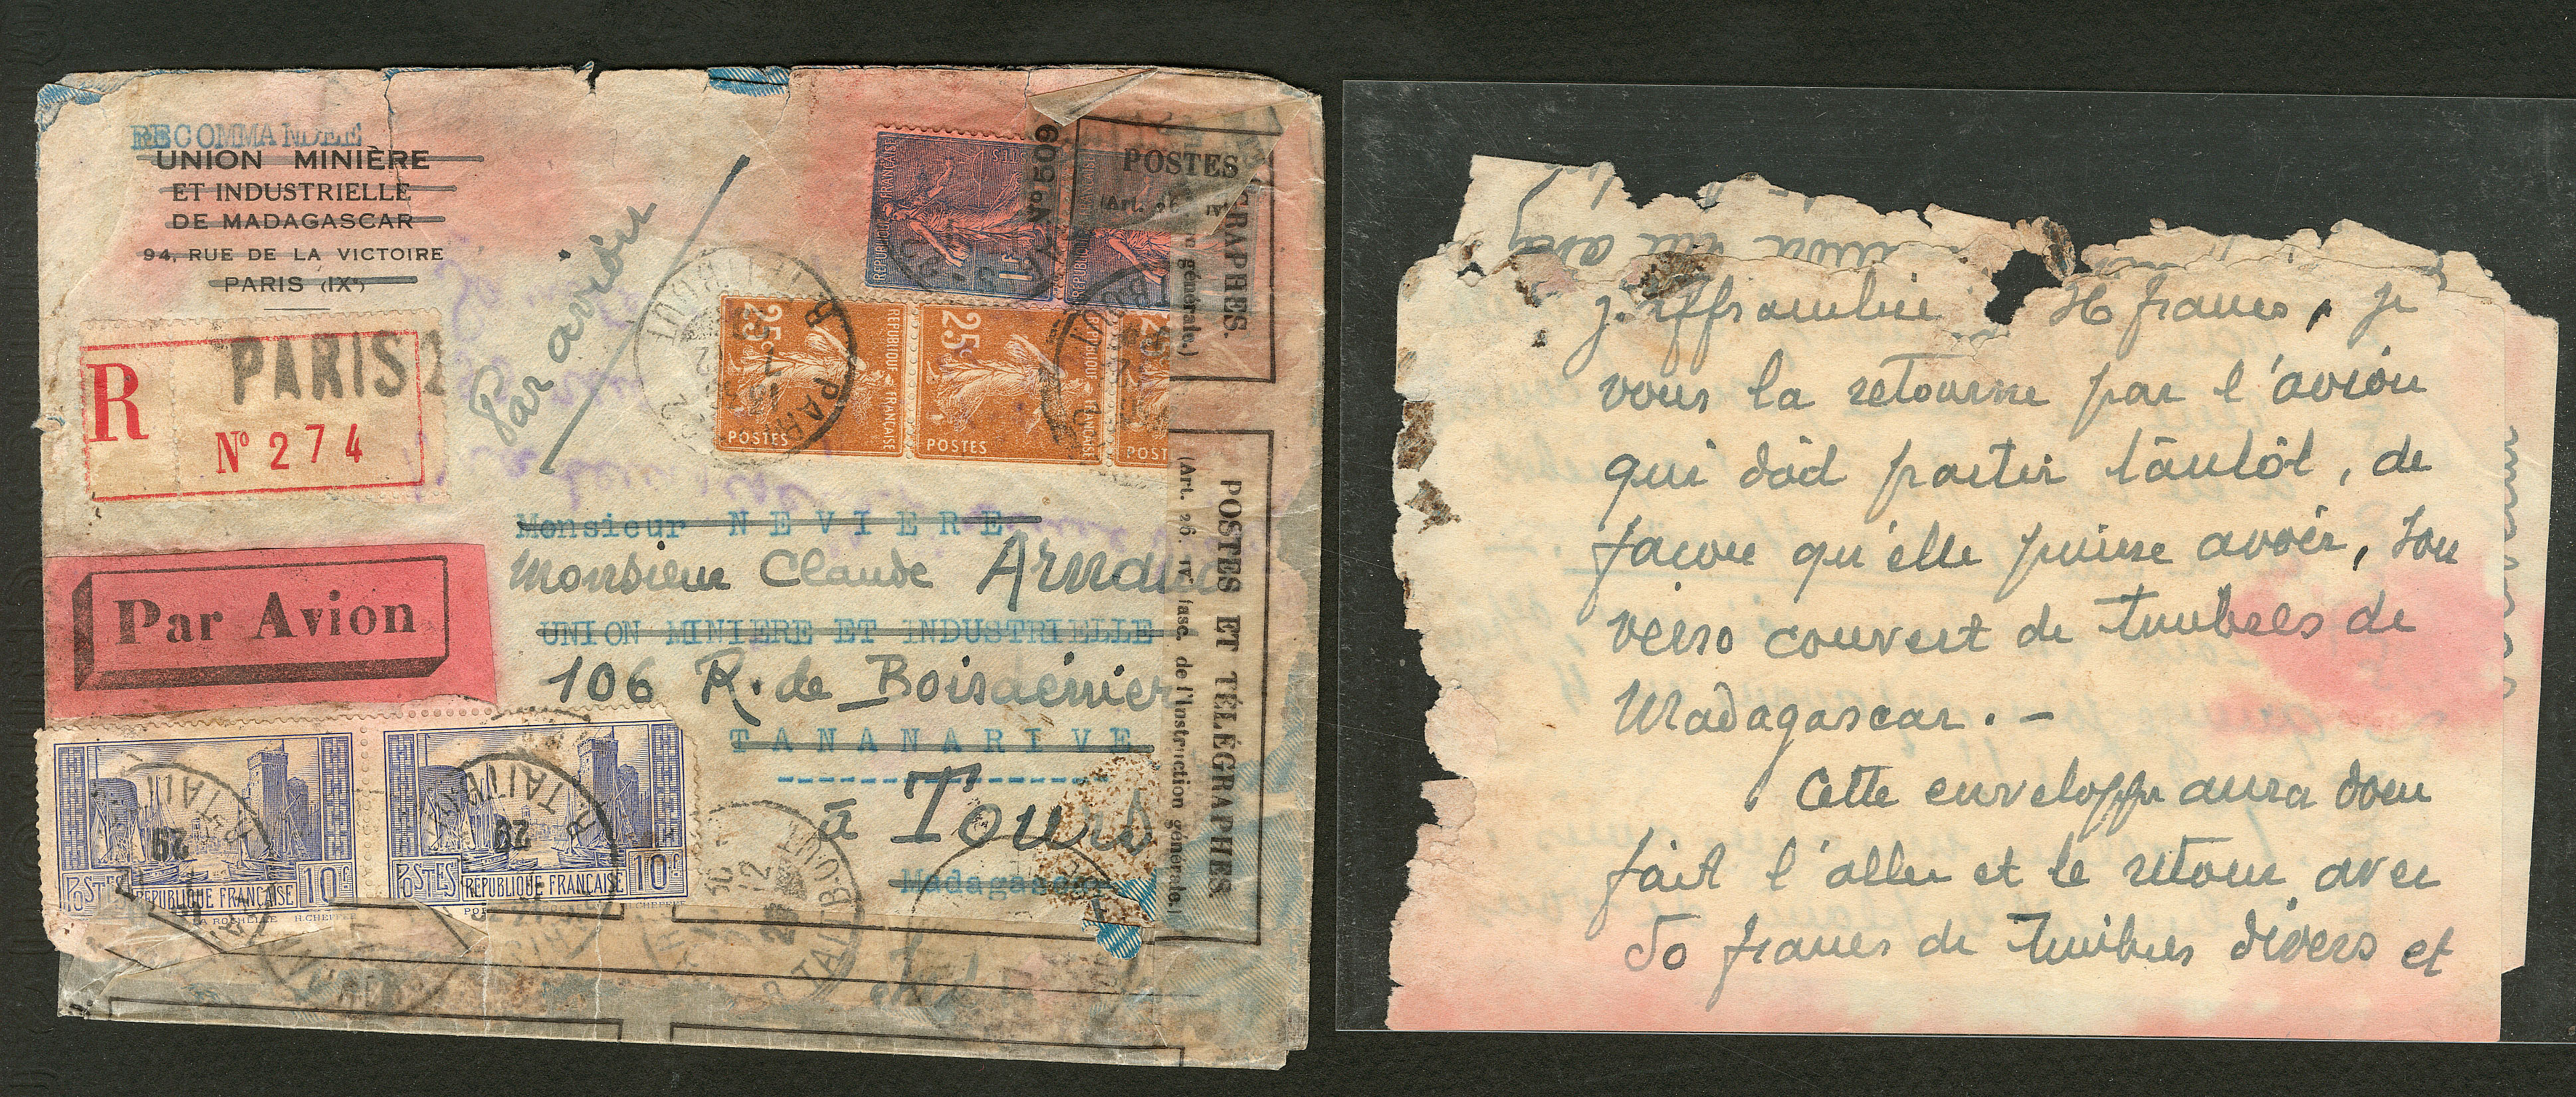 RECOMMANDEE
UNION MINIÈRE
ET INDUSTRIELLE
DE MADAGASCAR
94, RUE DE LA VICTOIRE
PARIS (IXe)
R
PARIS 2
N° 274
Par avion
Par Avion
REPUBLIQUE FRANÇAISE
1F
N° 509
POSTES
GRAPHES.
générale.)
25c
POSTES
REPUBLIQUE FRANÇAISE
25c
POSTES
FRANÇAISE
POST
PARIS
R. TAITBOUT
Monsieur NEVIERE
Monsieur Claude Arnaud
UNION MINIERE ET INDUSTRIELLE
106 R. de Boisdenier
TANANARIVE
à Tours
Madagascar
POSTES ET TÉLÉGRAPHES
(Art. 26 IVe fasc. de l'Instruction générale.)
POSTES
REPUBLIQUE FRANÇAISE
10F
LA ROCHELLE H.CHEFFER
POSTES
REPUBLIQUE FRANÇAISE
10F
TAITBOUT
29
36 francs, je
vous la retourne par l'avion
qui doit partir tantôt, de
facon qu'elle puisse avoir, son
verso couvert de timbres de
Madagascar. -
Cette enveloppe aura donc
fait l'aller et le retour avec
50 francs de timbres divers et